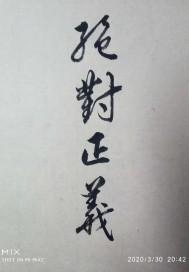 絕對正義
MIX
SHOT ON MI MIX2
2020/3/30  20:42